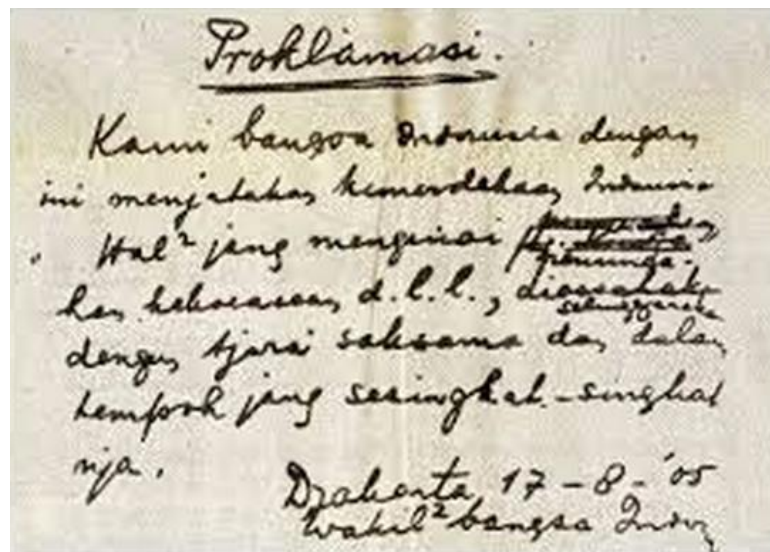 Proklamasi.
Kami bangsa Indonesia dengan
ini menjatakan kemerdekaan Indonesia
Hal² jang mengenai
kan kekoeasaan d.l.l., dioesahakan
selenggarakan
dengan tjara saksama dan dalam
tempoh jang sesingkat-singkat
nja.
Djakarta 17-8-'05
Wakil² bangsa Indon